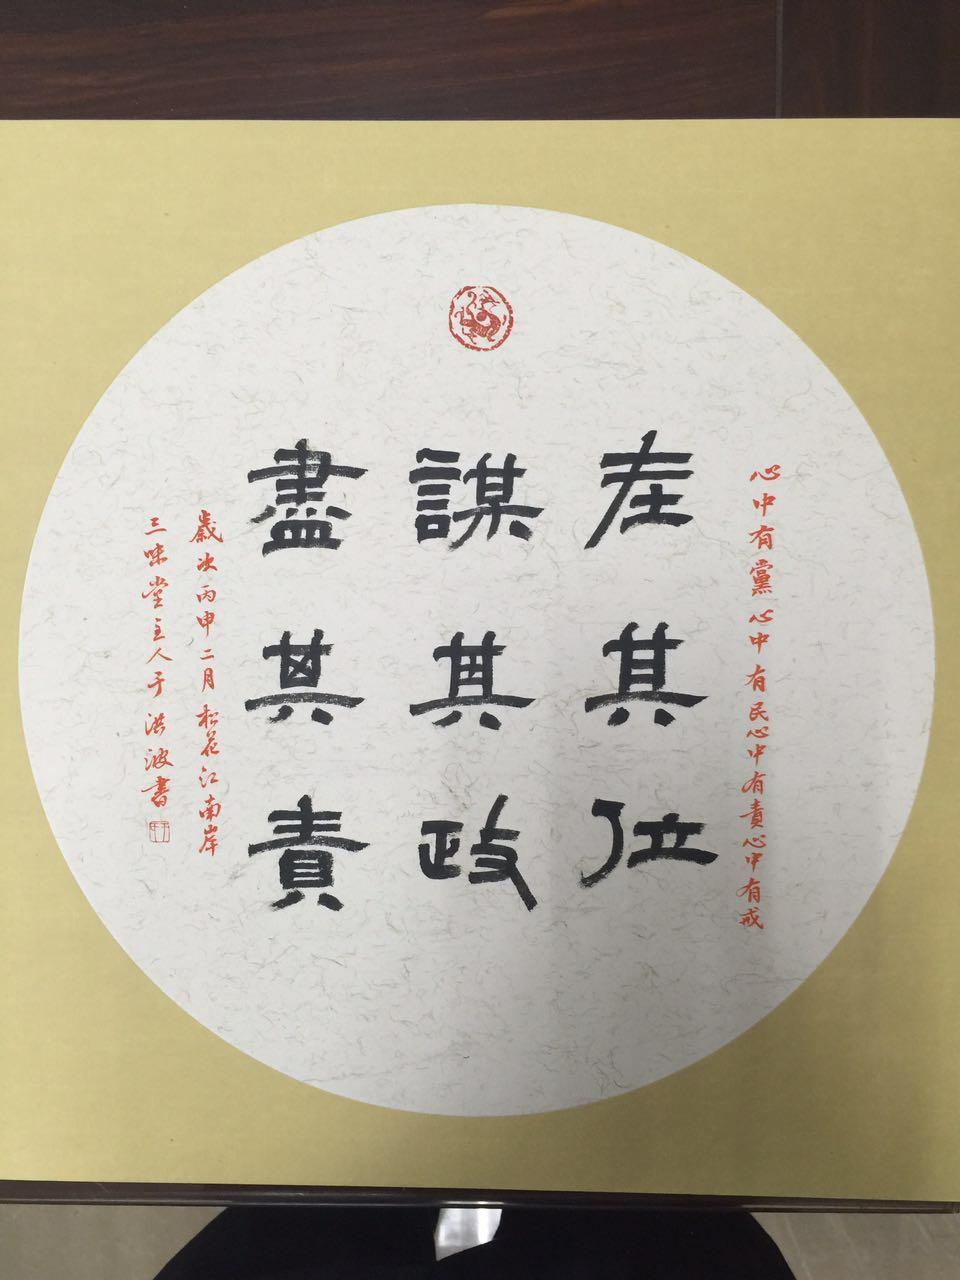 心中有黨心中有民心中有責心中有戒
在其位
謀其政
盡其責
歲次丙申二月松花江南岸
三味堂主人于洪波書